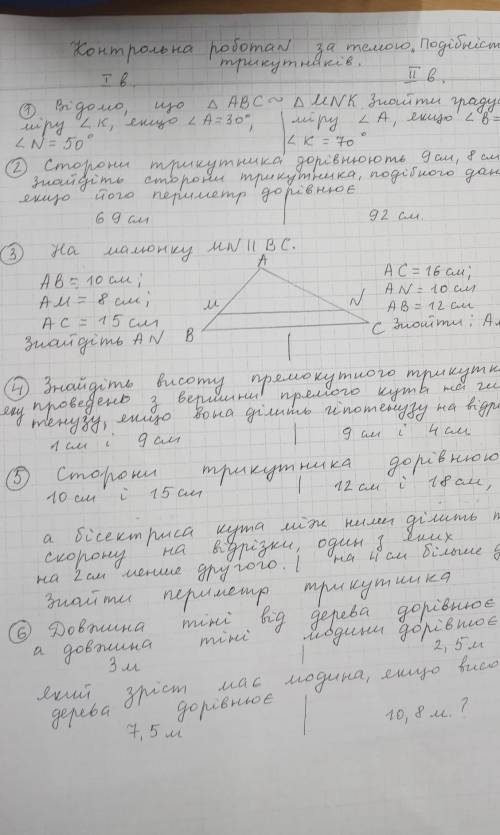 Контрольна робота№ за темою. Подібніст
трикутників.
I в. II в.
① Відомо, що △ ABC ~ △ MNK. Знайти граду
міру ∠K, якщо ∠A=30°, міру ∠A, якщо ∠B=
∠N=50° ∠K=70°
② Сторони трикутника дорівнюють 9см, 8см
Знайдіть сторони трикутника, подібного дан
якщо його периметр дорівнює
69 см 92 см.
③ На малюнку MN || BC.
A
AB = 10 см; AC = 16 см;
AM = 8 см; AN = 10 см
M N AB = 12 см
AC = 15 см B C Знайти: AM
Знайдіть AN
④ Знайдіть висоту прямокутного трикутни
яку проведено з вершини прямого кута на гіп
тенузу, якщо вона ділить гіпотенузу на відрі
1 см і 9 см 9 см і 4 см
⑤ Сторони трикутника дорівнюю
10 см і 15 см 12 см і 18 см,
а бісектриса кута між ними ділить т
сторону на відрізки, один з яких
на 2 см менше другого. на 4 см більше д
Знайти периметр трикутника
⑥ Довжина тіні від дерева дорівнює
а довжина тіні людини дорівнює
3 м 2,5 м
який зріст має людина, якщо висо
дерева дорівнює
7,5 м 10,8 м.?